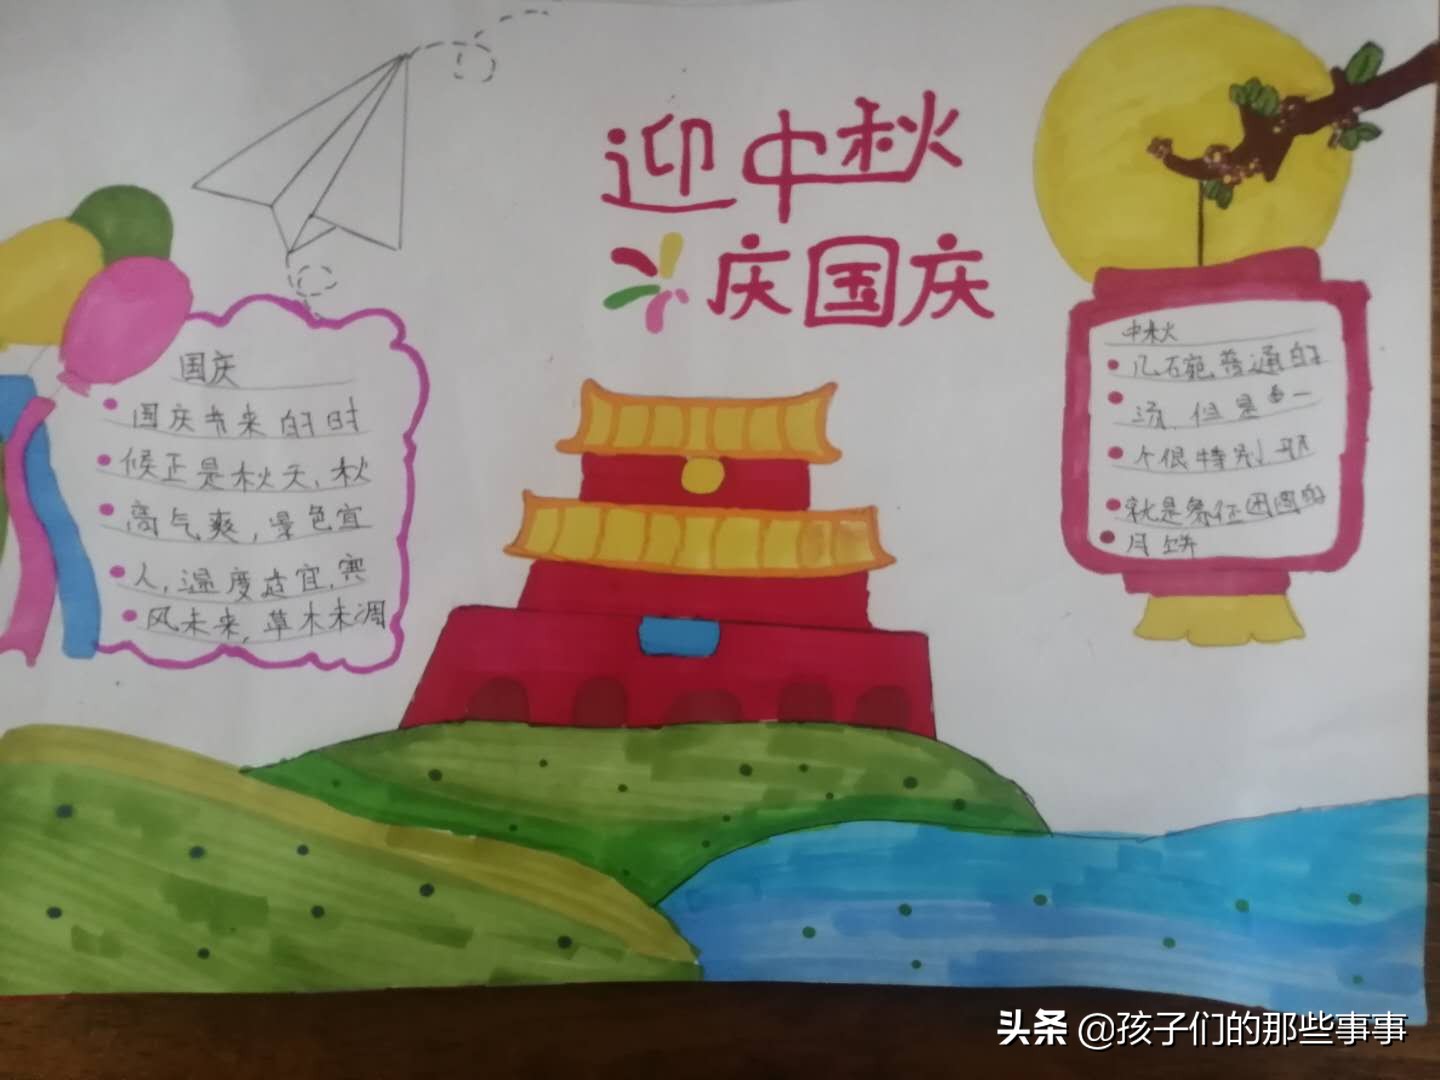 迎中秋
庆国庆
国庆
国庆节来的时
候正是秋天，秋
高气爽，景色宜
人，温度适宜，寒
风未来，草木未凋
中秋
几碗普通的
汤，但是
个很特别
就是象征团圆的
月饼
头条 @孩子们的那些事事